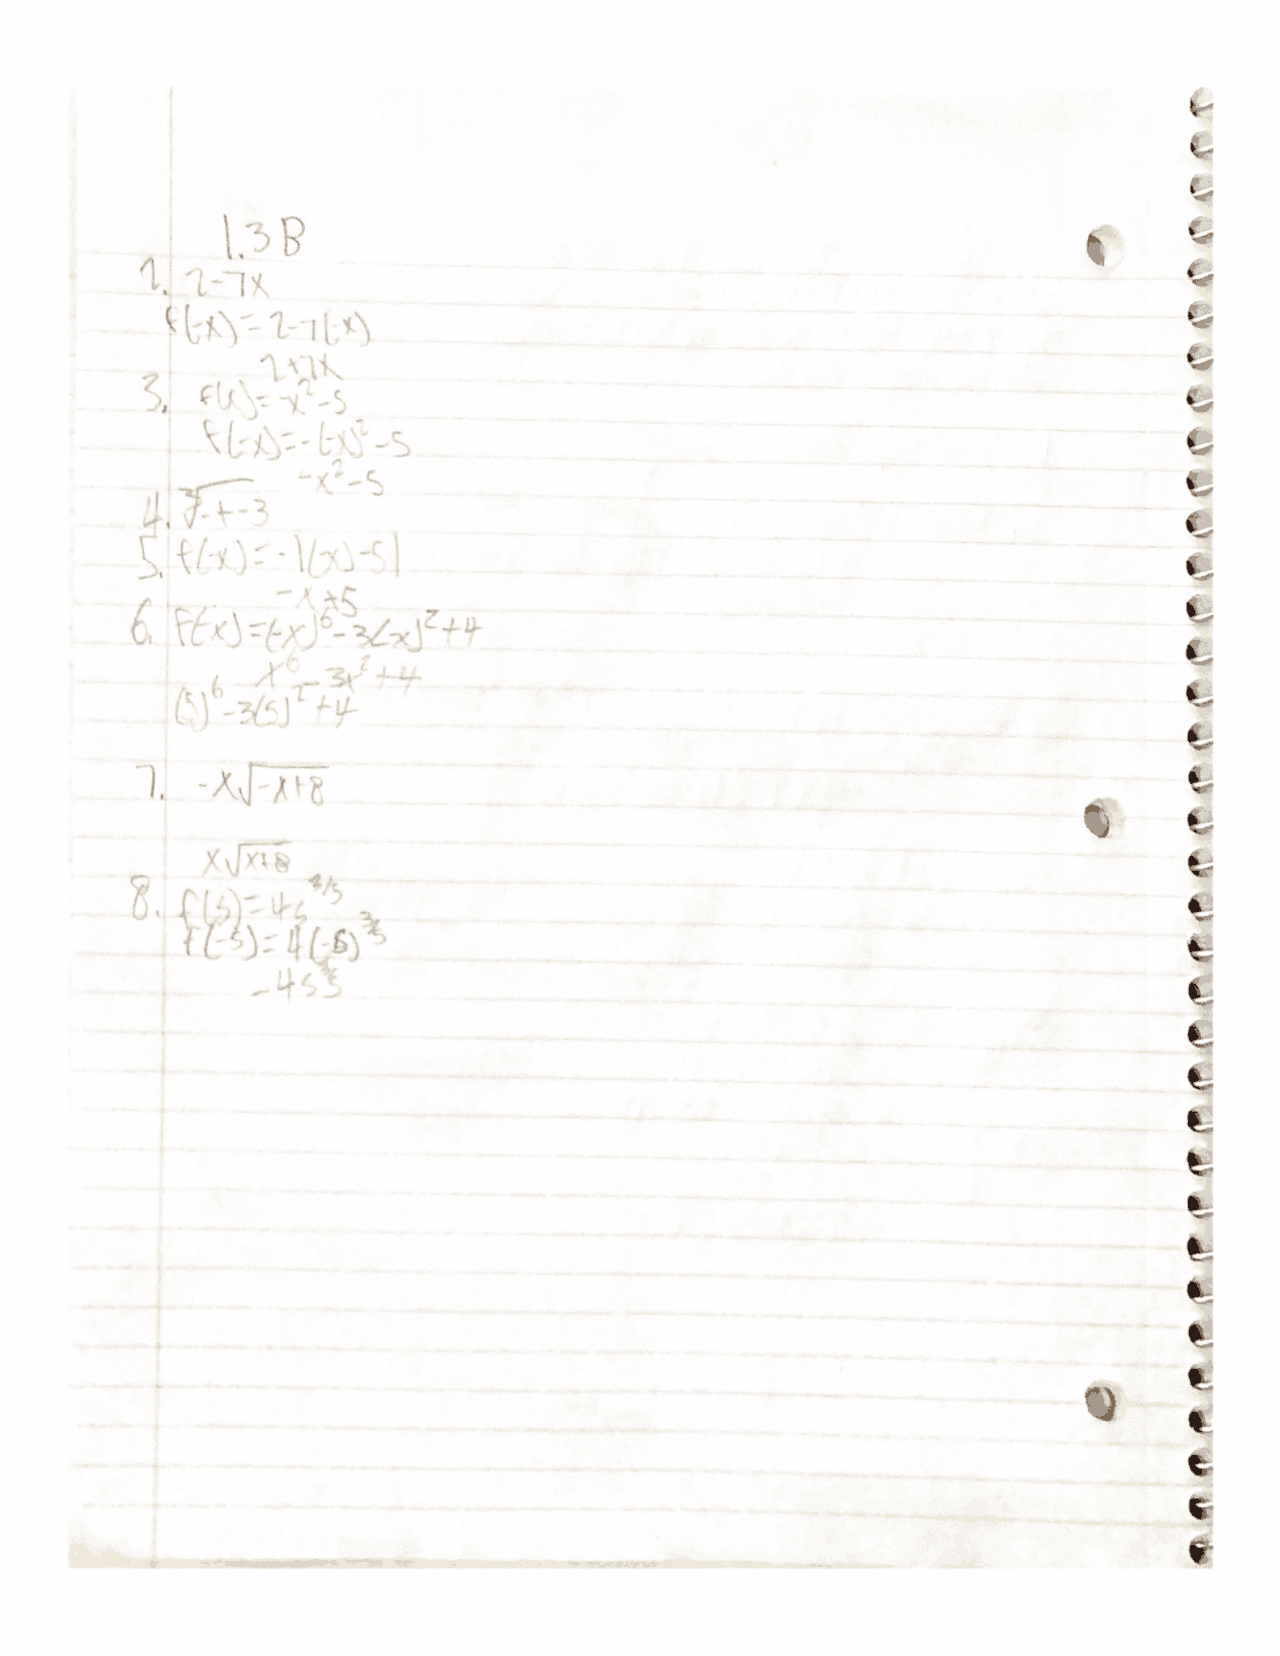 1.3B
2. 2-7x
f(-x) = 2-7(-x)
2+7x
3. f(x) = -x²-5
f(-x) = -(-x)²-5
-x²-5
4. ∛-t-3
5. f(-x) = -|(-x)-5|
-x+5
6. f(-x) = (-x)⁶-3(-x)²+4
x⁶-3x²+4
(5)⁶-3(5)²+4
7. -x√-x+8
x√x+8
8. f(s) = 4s^3/5
f(-s) = 4(-s)^3/5
-4s^3/5